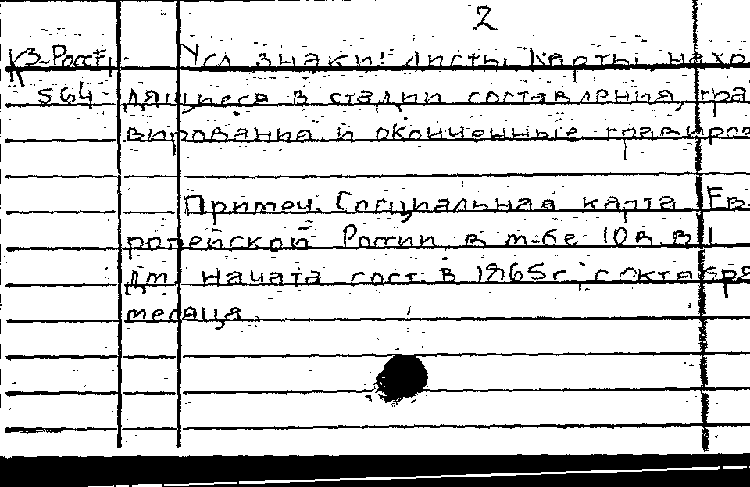 2
К3-Росс Усл. знаки: Листы карты, нахо-
564 дящиеся в стадии составления, гра-
вирования и оконченные гравиро
Примеч. Специальная карта Ев-
ропейской России в м-бе 10в в 1
дм начата сост. в 1865 г. с октября
месяца.